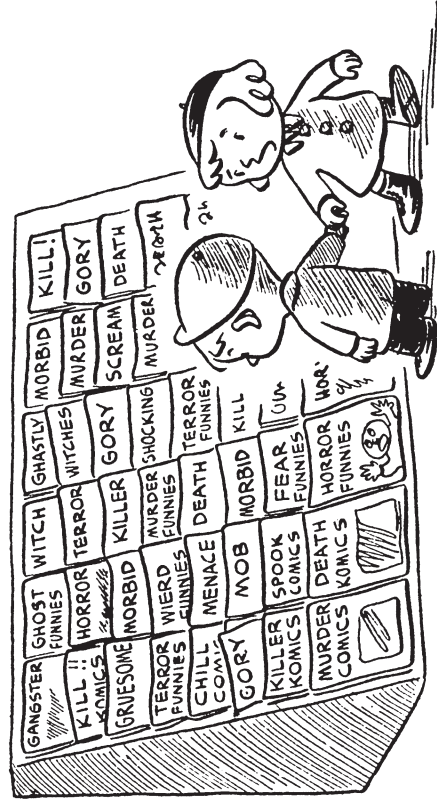 GANGSTER
GHOST
FUNNIES
WITCH
GHASTLY
MORBID
KILL!
KILL!!
KOMICS
HORROR
TERROR
WITCHES
MURDER
GORY
GRUESOME
MORBID
KILLER
GORY
SCREAM
DEATH
TERROR
FUNNIES
WIERD
FUNNIES
MURDER
FUNNIES
SHOCKING
MURDER!
CHILL
COMIC
MENACE
DEATH
TERROR
FUNNIES
GORY
MOB
MORBID
KILL
KILLER
KOMICS
SPOOK
COMICS
FEAR
FUNNIES
MURDER
COMICS
DEATH
KOMICS
HORROR
FUNNIES
HOR